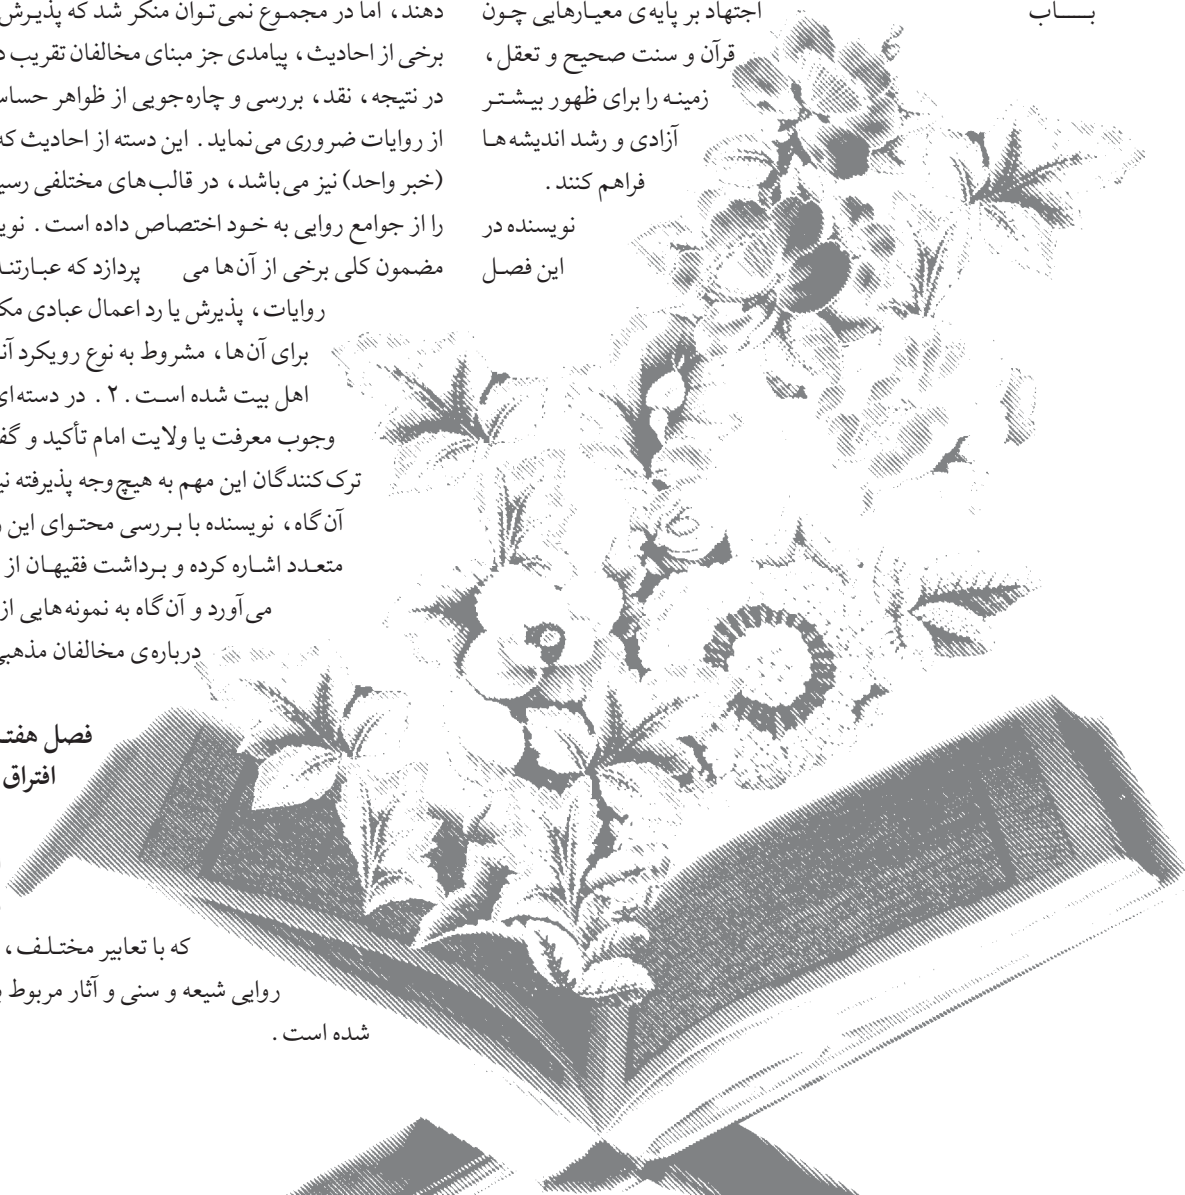 بـــــاب
اجتهاد بر پایه‌ی معیـارهایی چـون
قرآن و سنت صحیح و تعقل،
زمینـه را برای ظهور بیـشـتـر
آزادی و رشد اندیشه‌هـا
فراهم کنند.
نویسنده در
این فصـل
دهند، اما در مجمـوع نمی‌تـوان منکر شد که پذیـرش
برخی از احادیث، پیامدی جز مبنای مخالفان تقریب
در نتیجه، نقد، بررسی و چاره‌جویی از ظواهر
از روایات ضروری می‌نماید. این دسته از احادیث که
(خبر واحد) نیز می‌باشد، در قالب‌های مختلفی
را از جوامع روایی به خـود اختصاص داده است.
مضمون کلی برخی از آن‌ها می پردازد که
روایات، پذیرش یا رد اعمال عبادی
برای آن‌ها، مشروط به نوع رویکرد
اهل بیت شده اسـت. ۲. در
وجوب معرفت یا ولایت امام تأکید و
ترک‌کنندگان این مهم به هیچ‌وجه پذیرفته
آن‌گاه، نویسنده با بـررسی محتـوای این
متعـدد اشـاره کرده و بـرداشت فقیهـان از
می‌آورد و آن‌گاه به نمونه‌هایی از
درباره‌ی مخالفان
فصل
افتراق
که با تعابیر مختـلـف،
روایی شیعه و سنی و آثار مربوط
شده است.